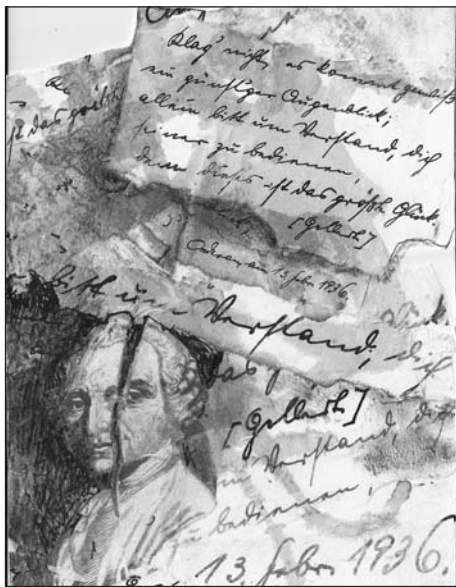 Klag' nicht, es kommt gewiß
ein günst'ger Augenblick;
allein bitt um Verstand, dich
seiner zu bedienen,
denn dieses ist das größte Glück.
[Gellert]
am 13. Febr. 1936.
Kl
st das größte
bitt um Verstand, dich
ück.
das
[Gellert]
m Verstand, dich
zu bedienen,
13. Febr. 1936.